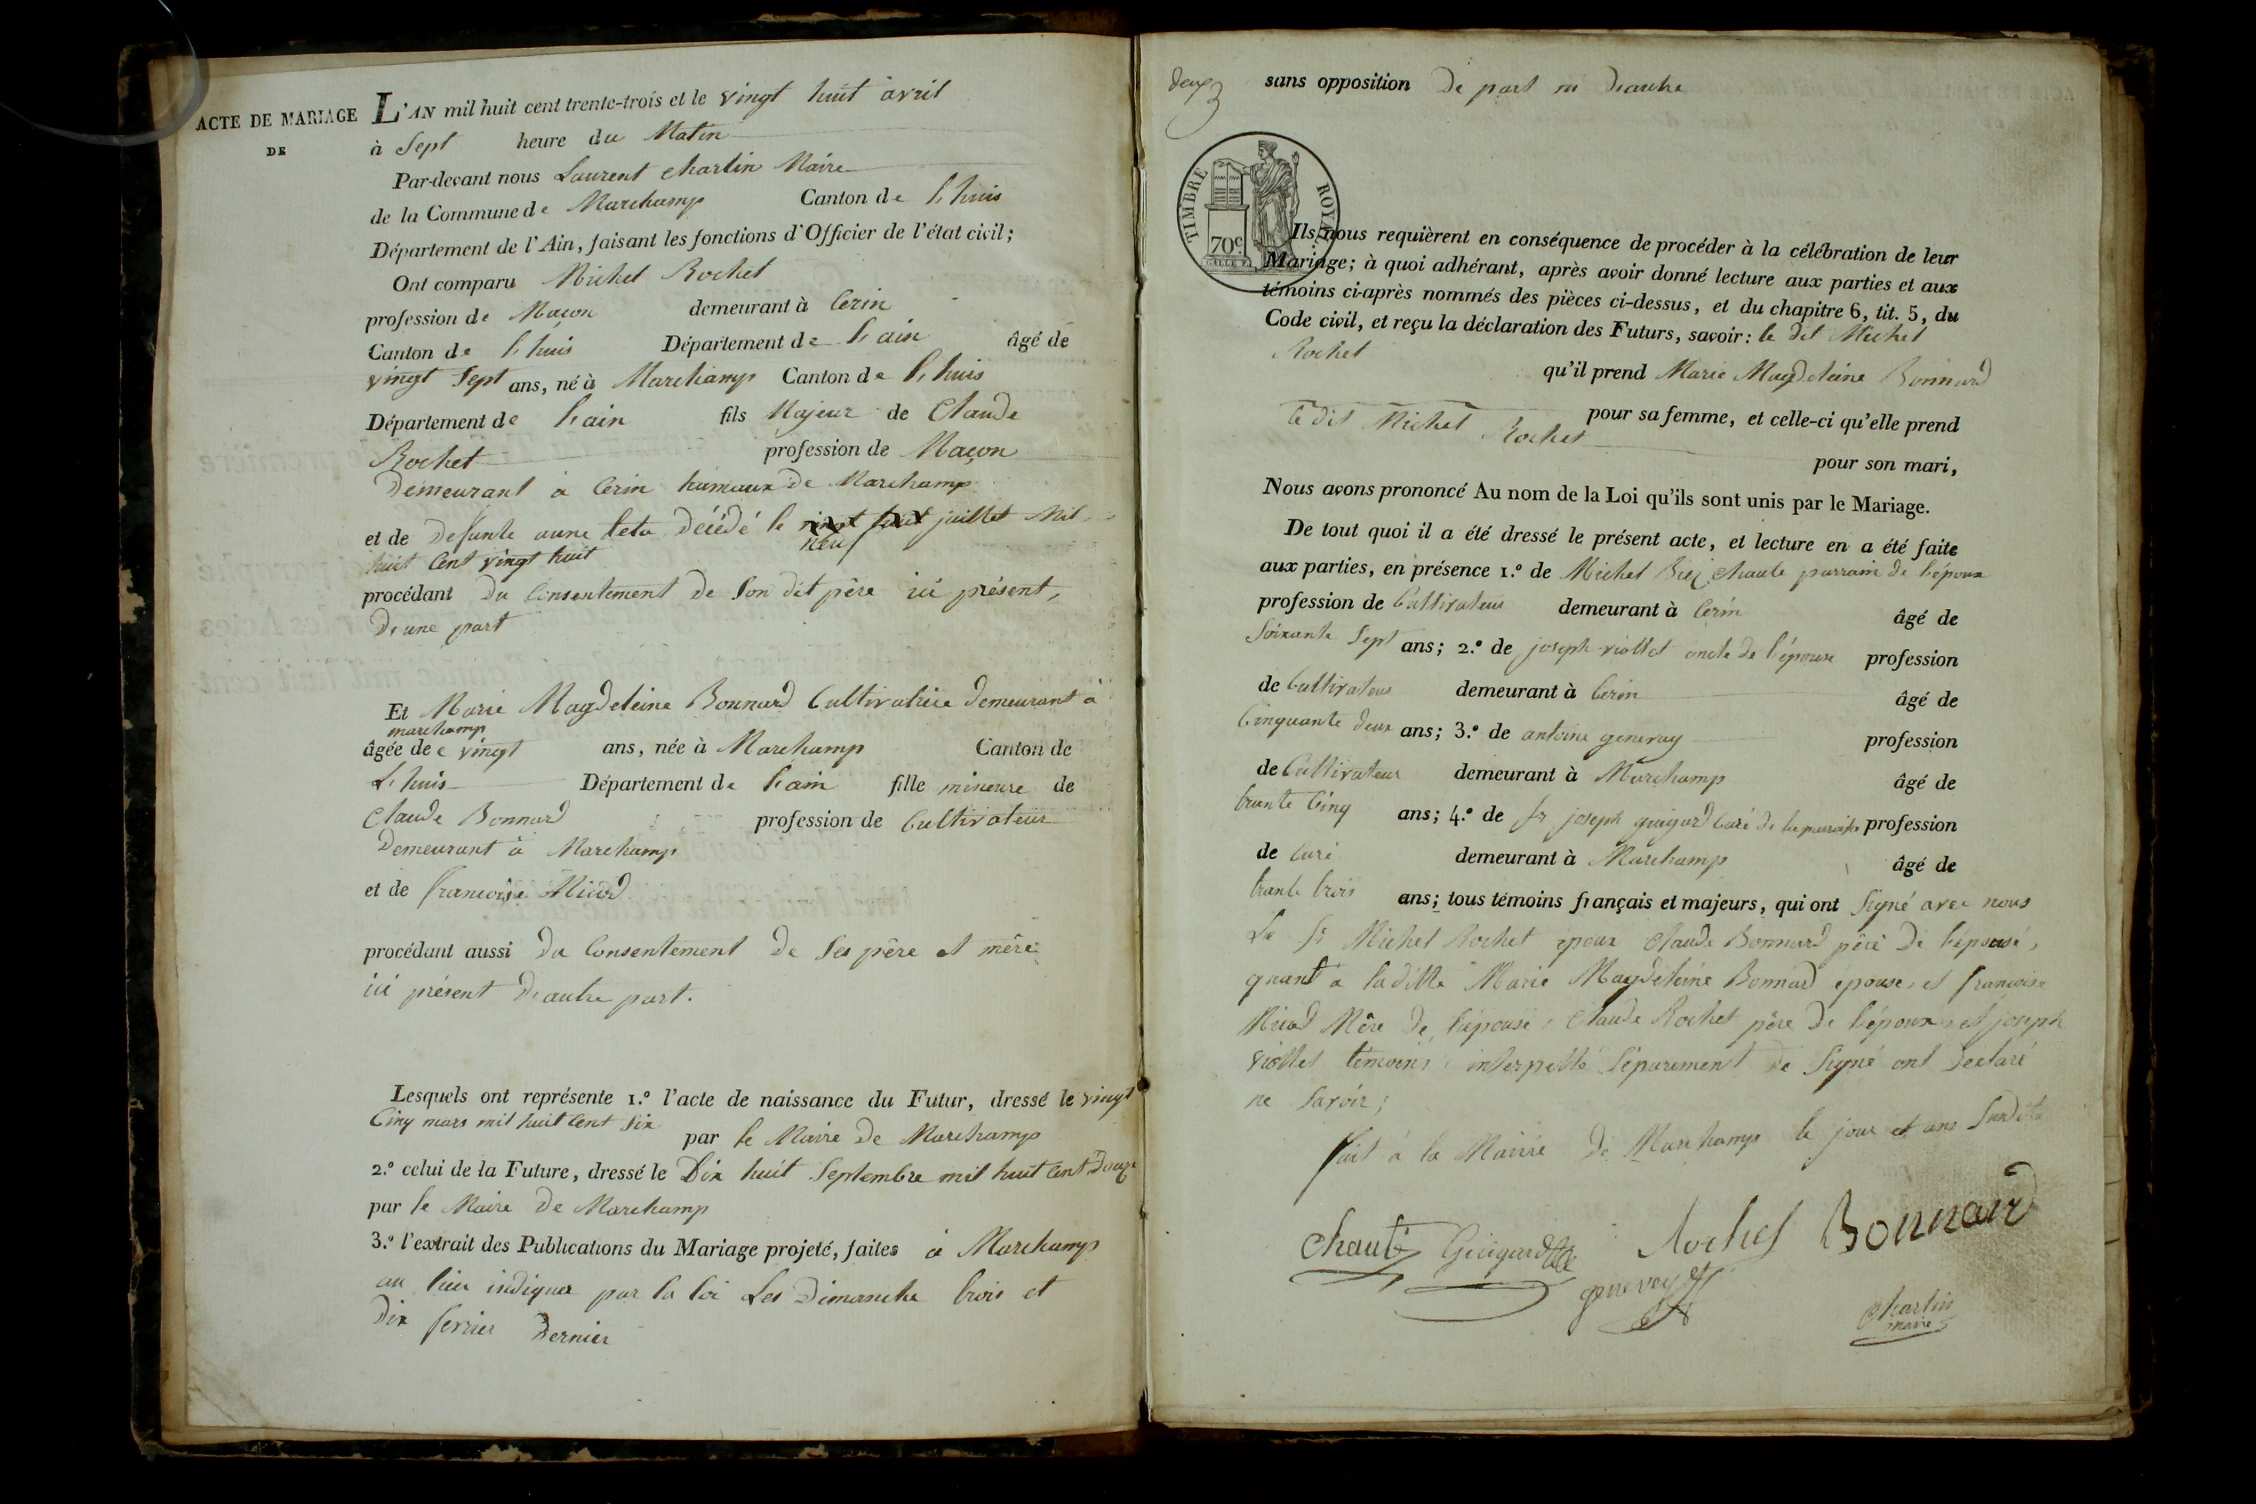 ACTE DE MARIAGE
DE
L'AN mil huit cent trente-trois et le vingt huit avril
à Sept heure du Matin
Par-devant nous Laurent Charlin Maire
de la Commune de Marchamp Canton de L'huis
Département de l'Ain, faisant les fonctions d'Officier de l'état civil;
Ont comparu Michel Rochet
profession de Maçon demeurant à Cerin
Canton de L'huis Département de L'ain âgé de
vingt Sept ans, né à Marchamp Canton de L'huis
Département de L'ain fils Majeur de Claude
Rochet profession de Maçon
Demeurant à Cerin hameaux de Marchamp
et de Defunte anne décédé le juillet Mil
neuf
huit Cent vingt huit
procédant du Consentement de Son dit père ici présent,
D'une part
Et Marie Magdeleine Bonnard Cultivatrice demeurant à
marchamp
âgée de vingt ans, née à Marchamp Canton de
L'huis Département de L'ain fille mineure de
Claude Bonnard profession de Cultivateur
Demeurant à Marchamp
et de francoise Micod
procédant aussi du Consentement de Ses père et mère
ici présent D'autre part.
Lesquels ont représente 1.º l'acte de naissance du Futur, dressé le vingt
Cinq mars mil huit Cent Six par le Maire de Marchamp
2.º celui de la Future, dressé le Dix huit Septembre mil huit Cent Douze
par le Maire de Marchamp
3.º l'extrait des Publications du Mariage projeté, faites à Marchamp
au lieu indiquer par la loi Les Dimanche trois et
Dix fevrier Dernier
deux
sans opposition De part ni D'autre
TIMBRE ROYAL
70c
Ils nous requièrent en conséquence de procéder à la célébration de leur
Mariage; à quoi adhérant, après avoir donné lecture aux parties et aux
témoins ci-après nommés des pièces ci-dessus, et du chapitre 6, tit. 5, du
Code civil, et reçu la déclaration des Futurs, savoir: le dit Michel
Rochet
qu'il prend Marie Magdeleine Bonnard
pour sa femme, et celle-ci qu'elle prend
le dit Michel Rochet
pour son mari,
Nous avons prononcé Au nom de la Loi qu'ils sont unis par le Mariage.
De tout quoi il a été dressé le présent acte, et lecture en a été faite
aux parties, en présence 1.º de Michel Chaulé parrain de l'époux
profession de Cultivateur demeurant à Cerin âgé de
Soixante Sept ans; 2.º de joseph viollet oncle de l'épouse profession
de Cultivateur demeurant à Cerin âgé de
Cinquante deux ans; 3.º de antoine genevay profession
de Cultivateur demeurant à Marchamp âgé de
trante Cinq ans; 4.º de sr joseph guigard Curé de la paroisse profession
de Curé demeurant à Marchamp âgé de
trante trois ans; tous témoins français et majeurs, qui ont Signé avec nous
Le Sr Michel Rochet époux Claude Bonnard père De l'épouse,
quant à laditte Marie Magdeleine Bonnard épouse, et francoise
Micod Mère de l'épouse, Claude Rochet père De l'époux, et joseph
viollet témoins, interpellé Séparement de Signé ont Declaré
ne Savoir;
fait à la Mairie de Marchamp le jour et ans Susdits
Chaulé Guigard Rochet Bonnard
genevay
Charlin
maire